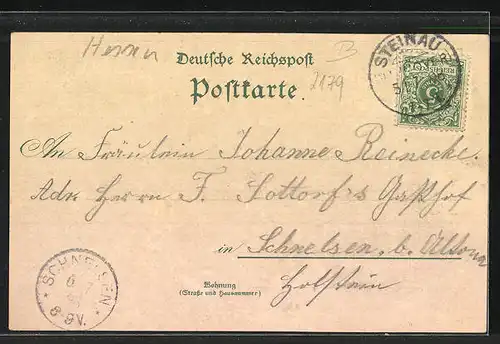 Deutsche Reichspost
Postkarte.
B
2179
STEINAU
An Fräulein Johanne Reinecke.
Adr. Herrn F. Lottorf's Gasthof
in Schnelsen. b. Altona
Holstein
Wohnung
(Straße und Hausnummer)
SCHNELSEN
8-9V.